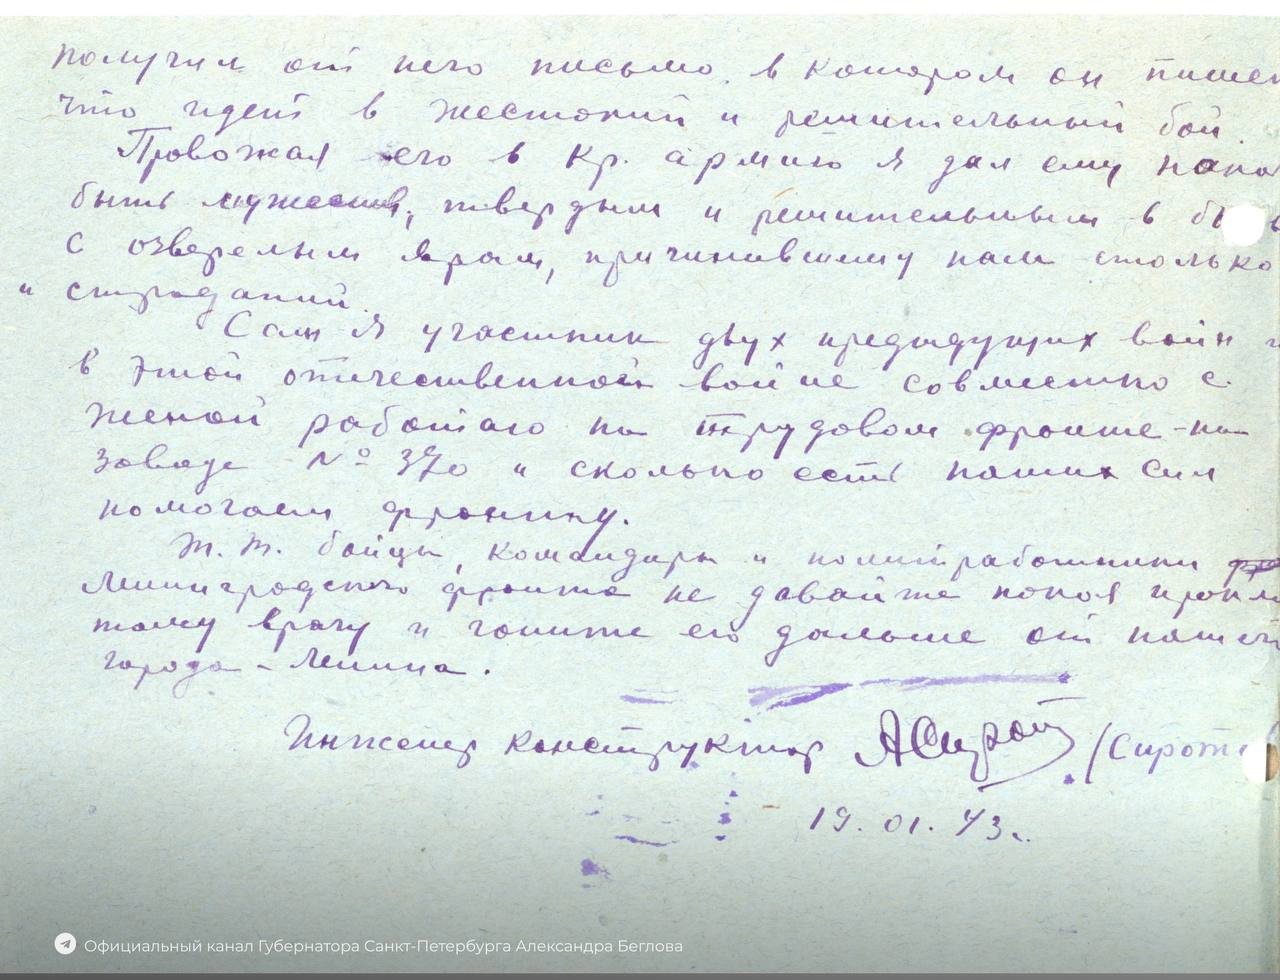 получил от него письмо, в котором он пишет
что идет в жестокий и решительный бой.
Провожая его в Кр. армию я дал ему нака
быть мужеств, твердым и решительным в б
с озверелым врагом, причинившему нам столько
и страданий.
Сам я участник двух предыдущих войн и
в этой отечественной войне совместно с
женой работаю на трудовом фронте-на
заводе № 370 и сколько есть наших сил
помогаем фронту.
т.т. бойцы, командиры и политработники
Ленинградского фронта не давайте покоя прокля
тому врагу и гоните его дальше от нашего
города - Ленина.
Инженер конструктор АСирот (Сирот
19.01.43г.
Официальный канал Губернатора Санкт-Петербурга Александра Беглова